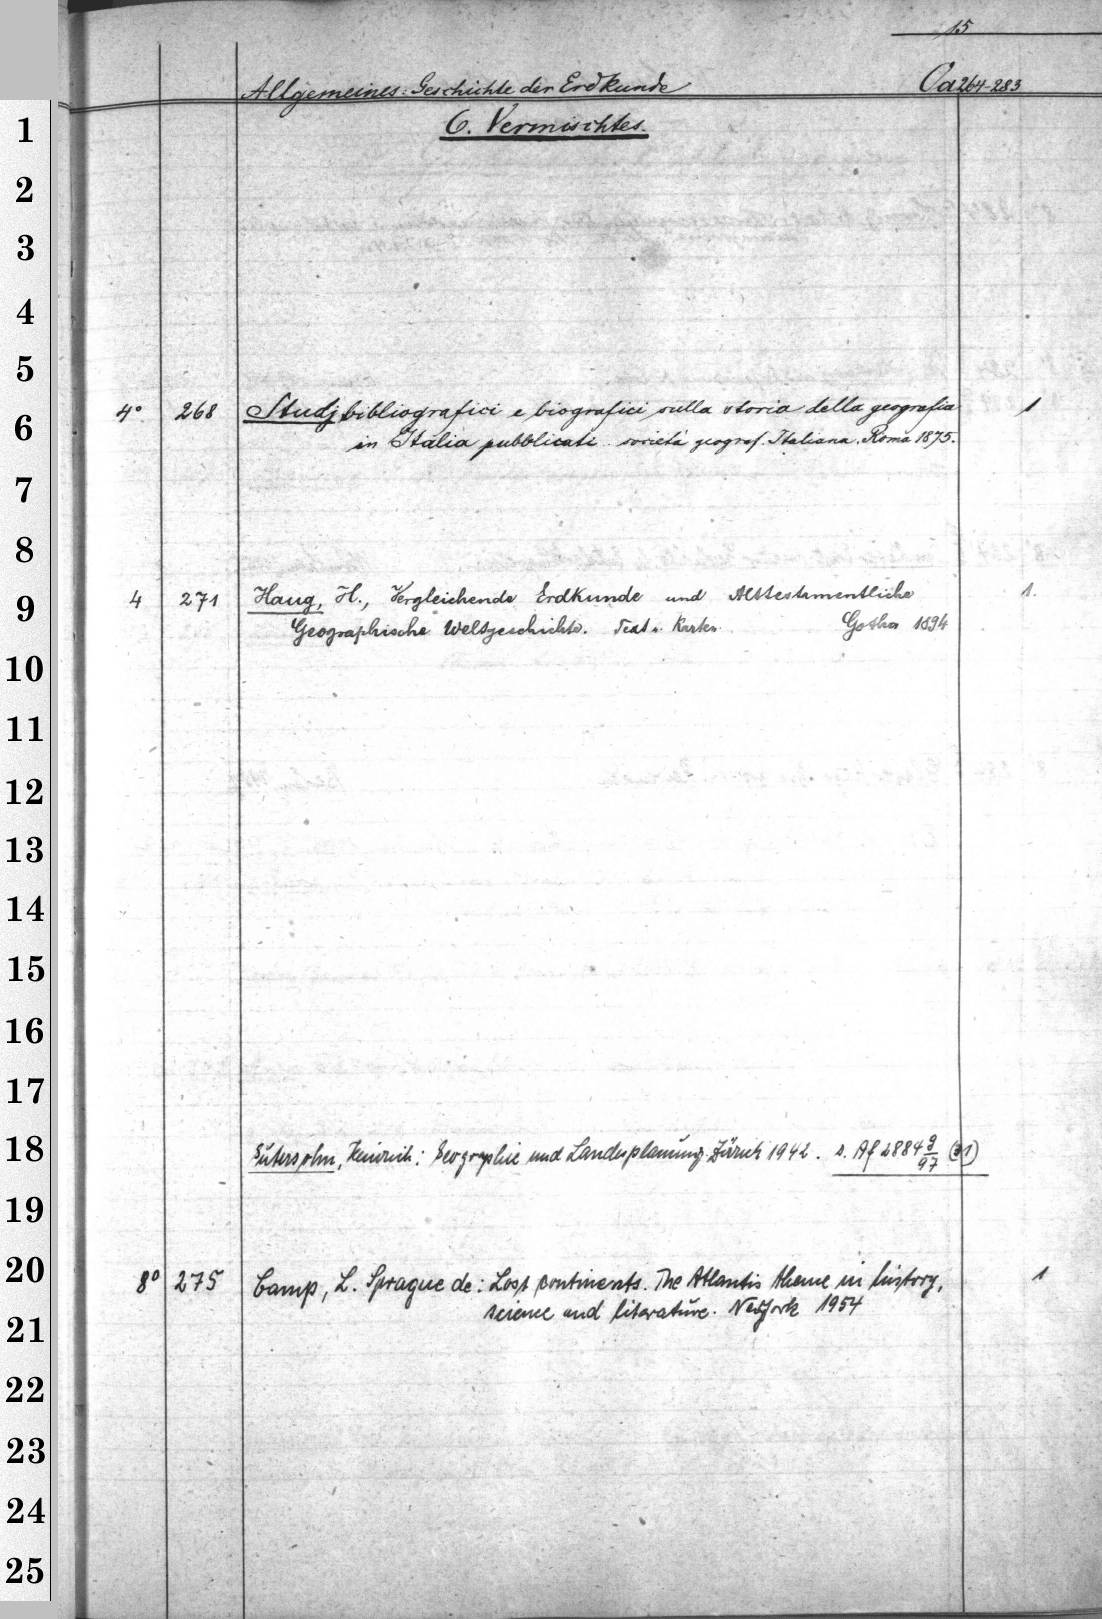 15
Allgemeines: Geschichte der Erdkunde Oa 264-283
1
6. Vermischtes.
2
3
4
5
4° 268 Studj bibliografici e biografici sulla storia della geografia 1
6
in Italia pubblicati società geograf. Italiana. Roma 1875.
7
8
9
4 271 Haug, H., Vergleichende Erdkunde und Alttestamentliche 1.
Geographische Weltgeschichte. Text u. Karten. Gotha 1894
10
11
12
13
14
15
16
17
18
Gutersohn, Heinrich: Geographie und Landesplanung. Zürich 1942. s. Af 2884 g/97 (31)
19
20
8° 275 Camp, L. Sprague de: Lost continents. The Atlantis theme in history, 1
science and literature. New York 1954
21
22
23
24
25